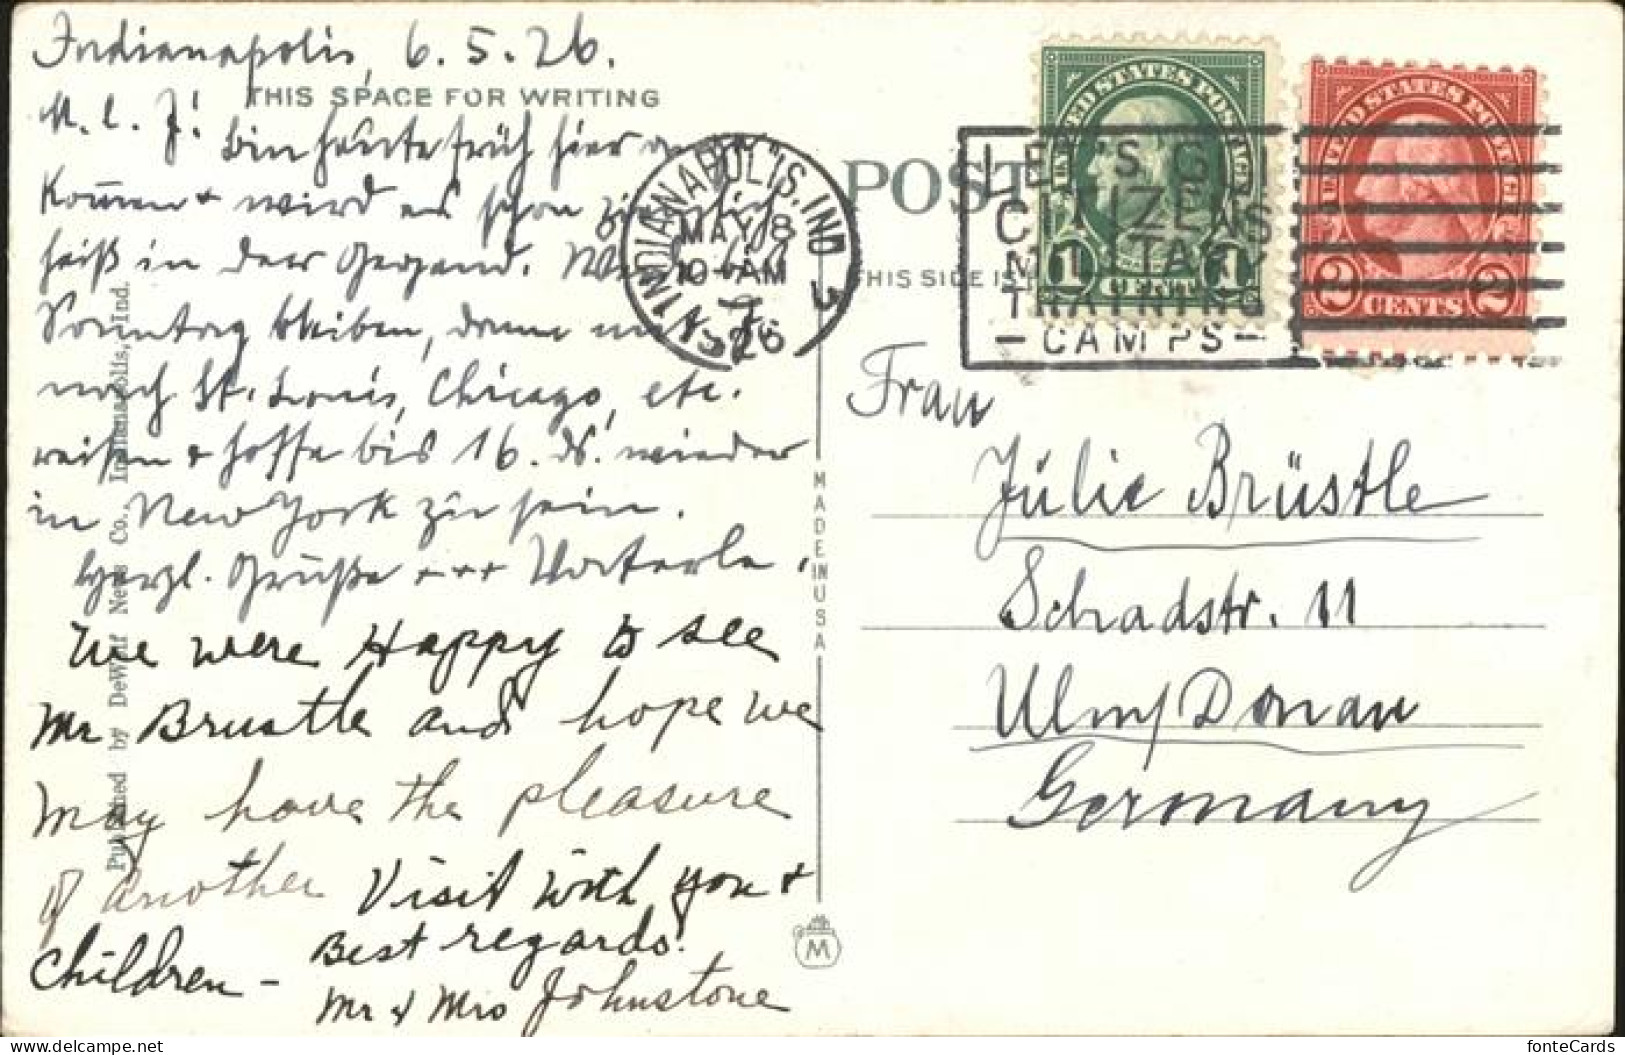 Indianapolis, 6.5.26.
THIS SPACE FOR WRITING
M. l. J.!
bin heute früh hier ange
kommen + wird es schon ziemlich
heiß in der Gegend. Werde bis
Sonntag bleiben, dann
nach St. Louis, Chicago, etc.
reisen + hoffe bis 16. ds. wieder
in New York zu sein.
Herzl. Grüße +++ Vaterle.
We were Happy to see
Mr Brustle and hope we
May have the pleasure
of another Visit with you +
Children – Best regards.
Mr & Mrs Johnstone
Published by DeWolf News Co., Indianapolis, Ind.
INDIANAPOLIS, IND.
MAY 8
10 AM
26
3
MADE IN USA
M
POST
THIS SIDE IS
LET'S GO
CITIZENS
MILITARY
TRAINING
– CAMPS –
UNITED STATES POSTAGE
1 CENT 1
UNITED STATES POSTAGE
2 CENTS 2
Frau
Julie Brüstle
Schadstr. 11
Ulm/Donau
Germany
fonteCards